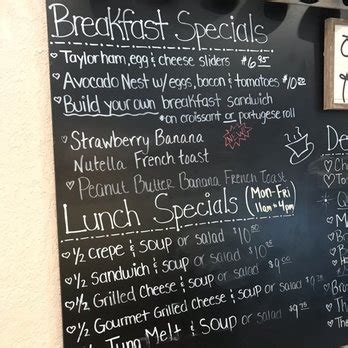 Breakfast Specials
Taylorham, egg & cheese sliders $6.95
Avocado Nest w/eggs, bacon & tomatoes $10.50
Build your own breakfast sandwich
*on croissant or portugese roll
Strawberry Banana
Nutella French toast
NEW
Peanut Butter Banana French Toast
Lunch Specials (Mon-Fri
11am - 4pm)
1/2 crepe & soup or salad $10.50
1/2 Sandwich & soup or salad $10.50
1/2 Grilled Cheese & soup or salad $9.00
1/2 Gourmet Grilled Cheese & soup or salad $9.75
1/2 Tuna Melt & soup or salad $9.
De